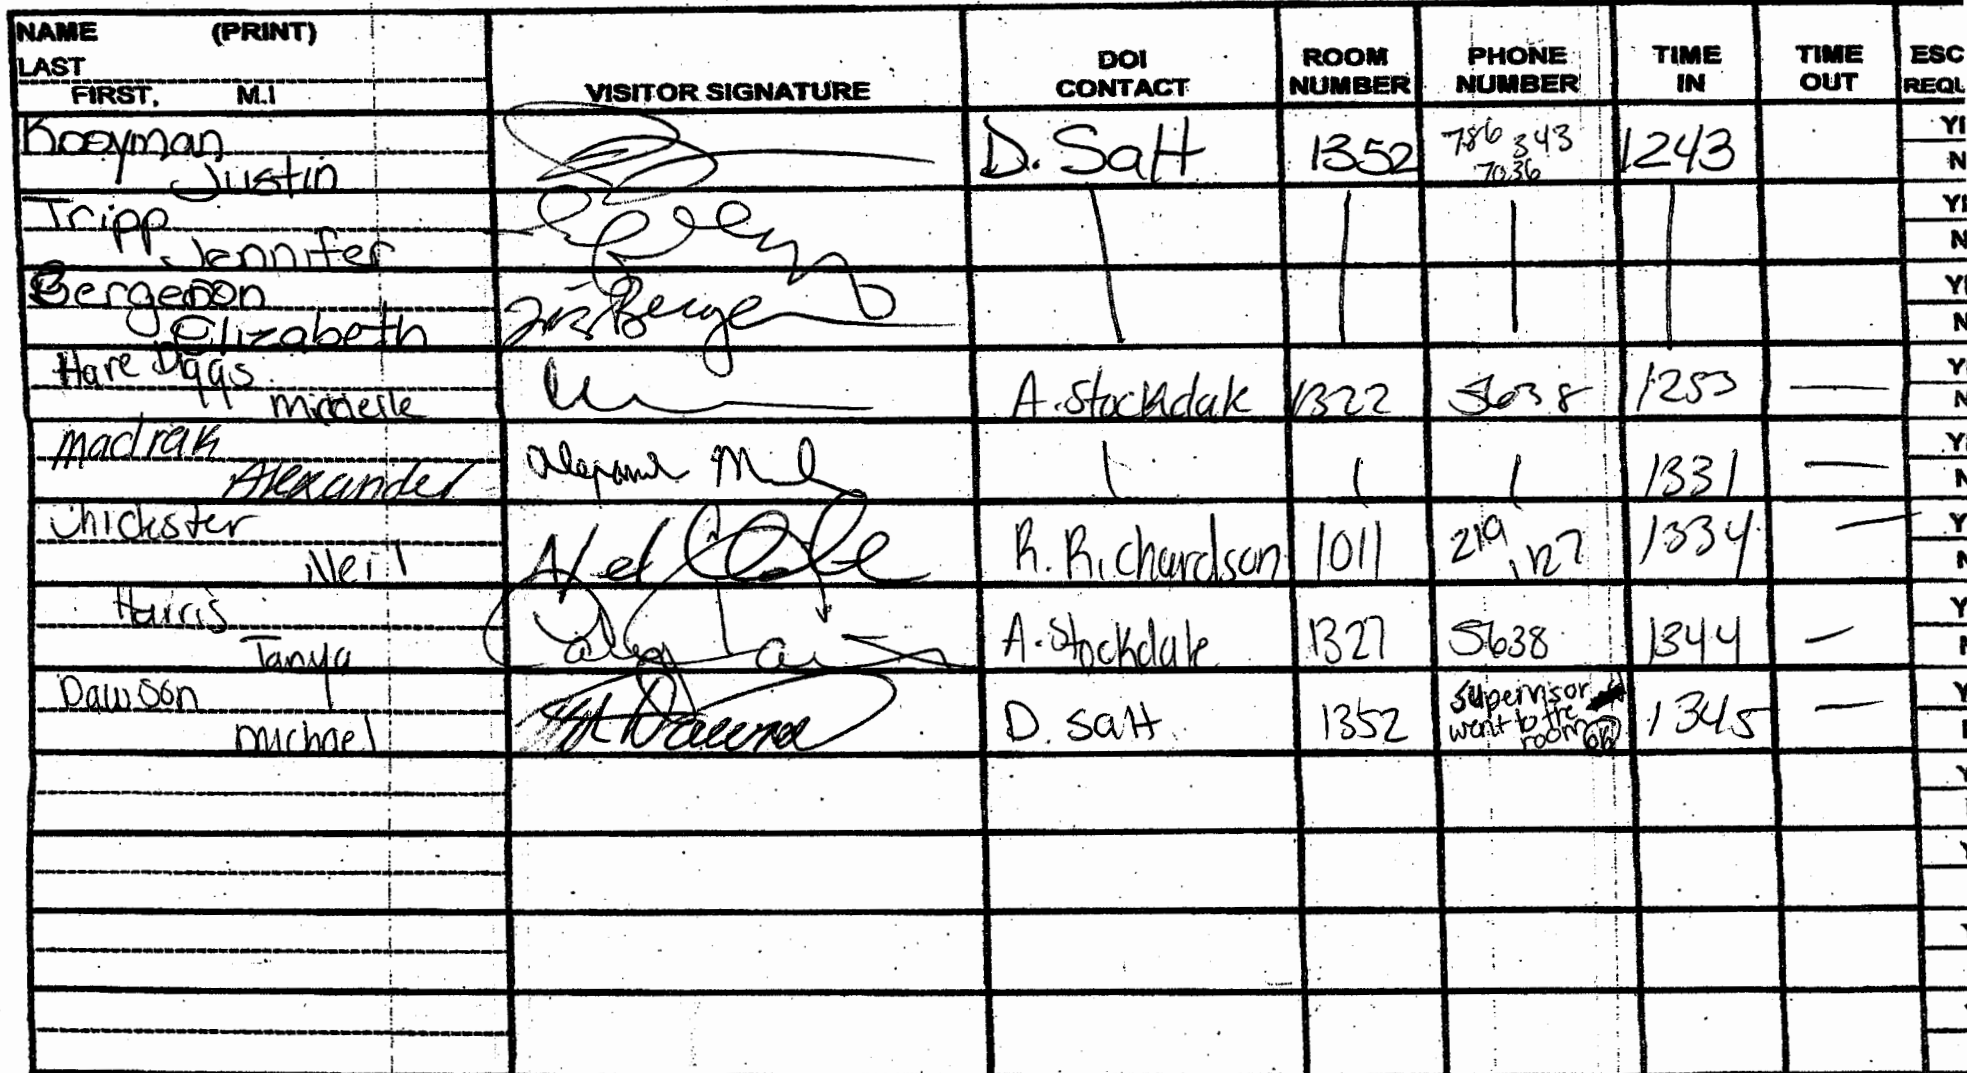 NAME (PRINT)
LAST
FIRST, M.I
VISITOR SIGNATURE
DOI CONTACT
ROOM NUMBER
PHONE NUMBER
TIME IN
TIME OUT
ESC
REQU
Kooyman
Justin
D. Satt 1352 786 343 7036 1243
YE
N
Tripp
Jennifer
YE
N
Bergeson
Elizabeth
YE
N
Hare Diggs
A. Stockdale 1322 5638 1253 —
Y
N
Madrak
Alexander
1331 —
Y
N
Chickster
Neil
R. Richardson 1011 219 1334 —
Y
N
Harris
Tanya
A. Stockdale 1327 5638 1344 —
Y
Dawson
Michael
D. Satt 1352 supervisor went to the room ok 1345 —
Y